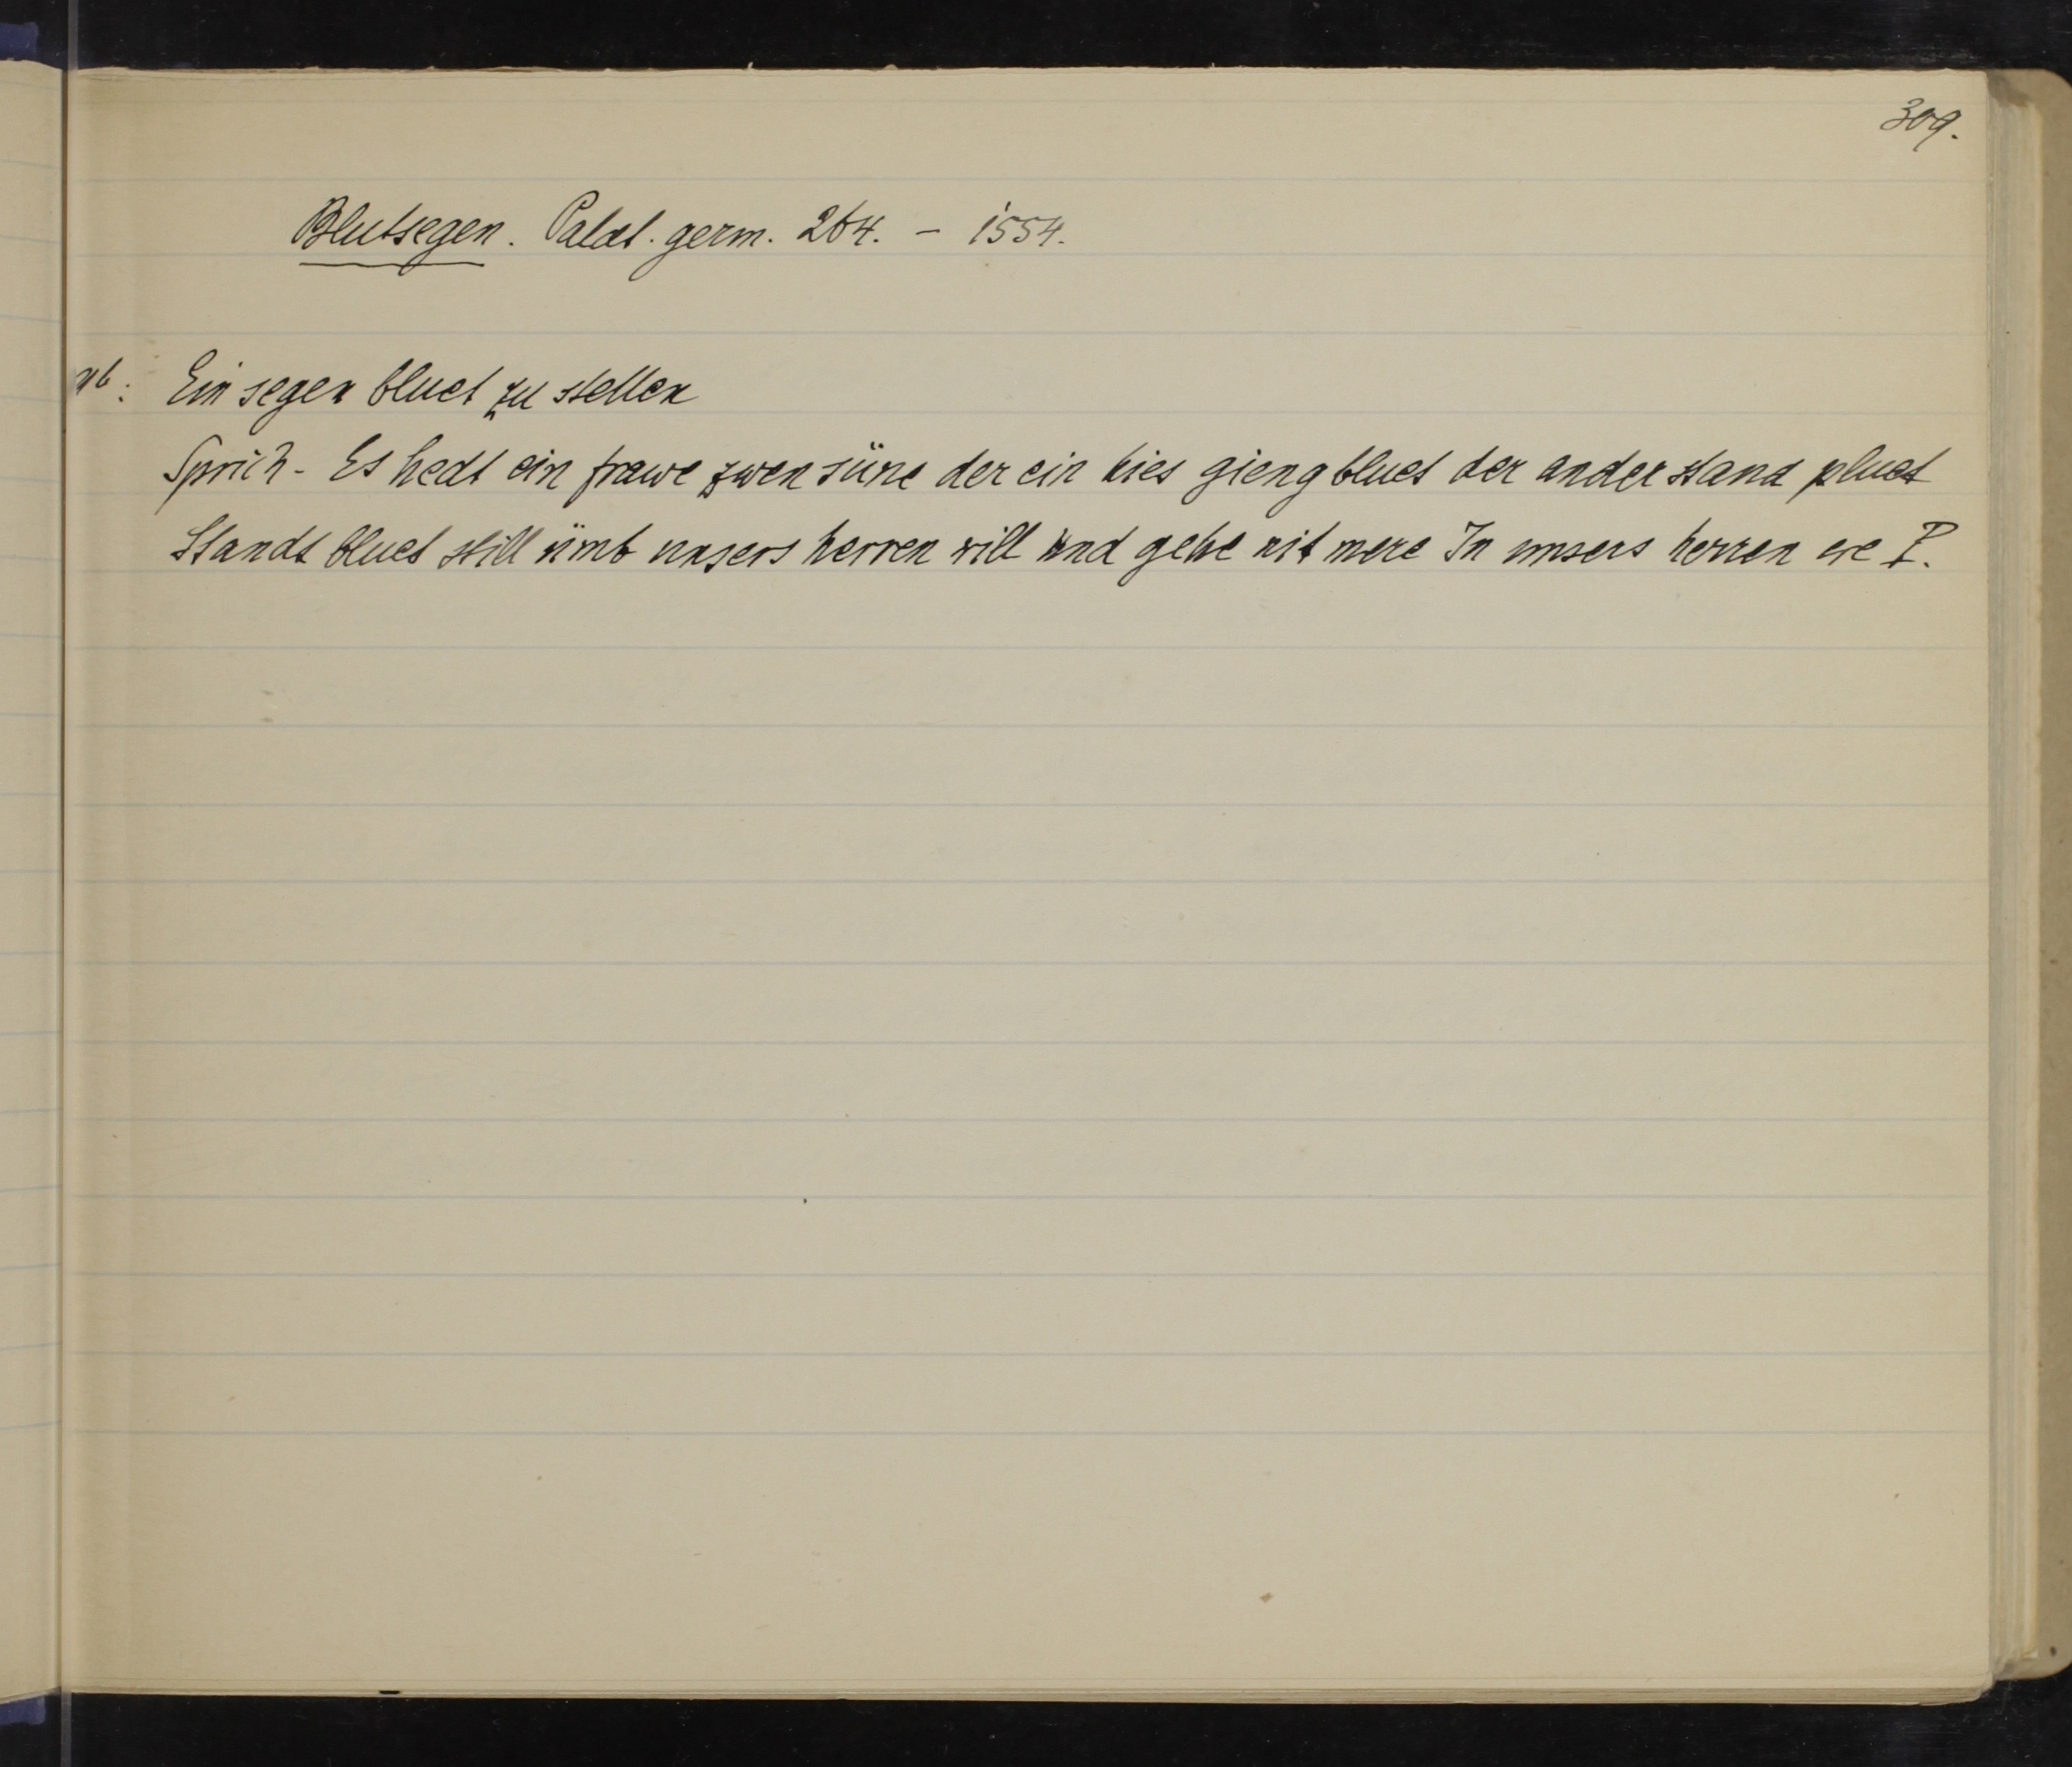 309.
Blutsegen. Palat. germ. 264. - 1554.
Ein segen bluet zu stellen
Sprich - Es hedt ein frawe zwen süne der ein hies gieng bluet der ander stand pluet
Standt bluet still ümb unsers herren will und gehe nit mere In unsers herren ere